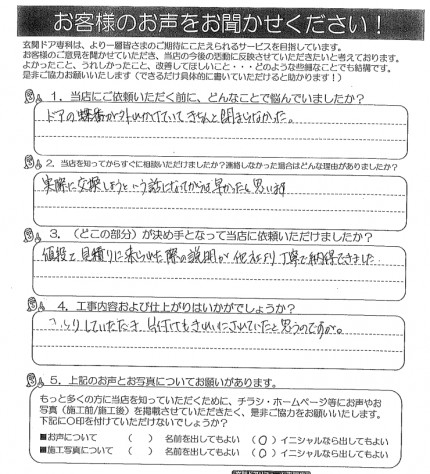 お客様のお声をお聞かせください！
玄関ドア専科は、より一層皆さまのご期待にこたえられるサービスを目指しています。
お客様のご意見を聞かせていただき、当店の今後の活動に反映させていただきたいと考えております。
よかったことう、うれしかったこと、改善してほしいこと・・・どのような些細なことでも結構です。
是非ご協力お願いいたします（できるだけ具体的に書いていただけると助かります！）
1．当店にご依頼いただく前に、どんなことで悩んでいましたか？
ドアの蝶番が外れかけていてきちんと閉まらなかった。
2．当店を知ってからすぐに相談いただけましたか？連絡しなかった場合はどんな理由がありましたか？
実際に交換しようという話になってからは早かったと思います
3．（どこの部分）が決め手となって当店に依頼いただけましたか？
値段と見積りに来られた際の説明が他社より丁寧で納得できました
4．工事内容および仕上がりはいかがでしょうか？
していただき、片付けもきれいにされていたと思うのですが。
5．上記のお声とお写真についてお願いがあります。
もっと多くの方に当店を知っていただくために、チラシ・ホームページ等にお声やお
写真（施工前/施工後）を掲載させていただきたく、是非ご協力をお願いいたします。
下記に○印を付けていただけないでしょうか？
■お声について （ ） 名前を出してもよい （○）イニシャルなら出してもよい
■施工写真について （ ） 名前を出してもよい （○）イニシャルなら出してもよい